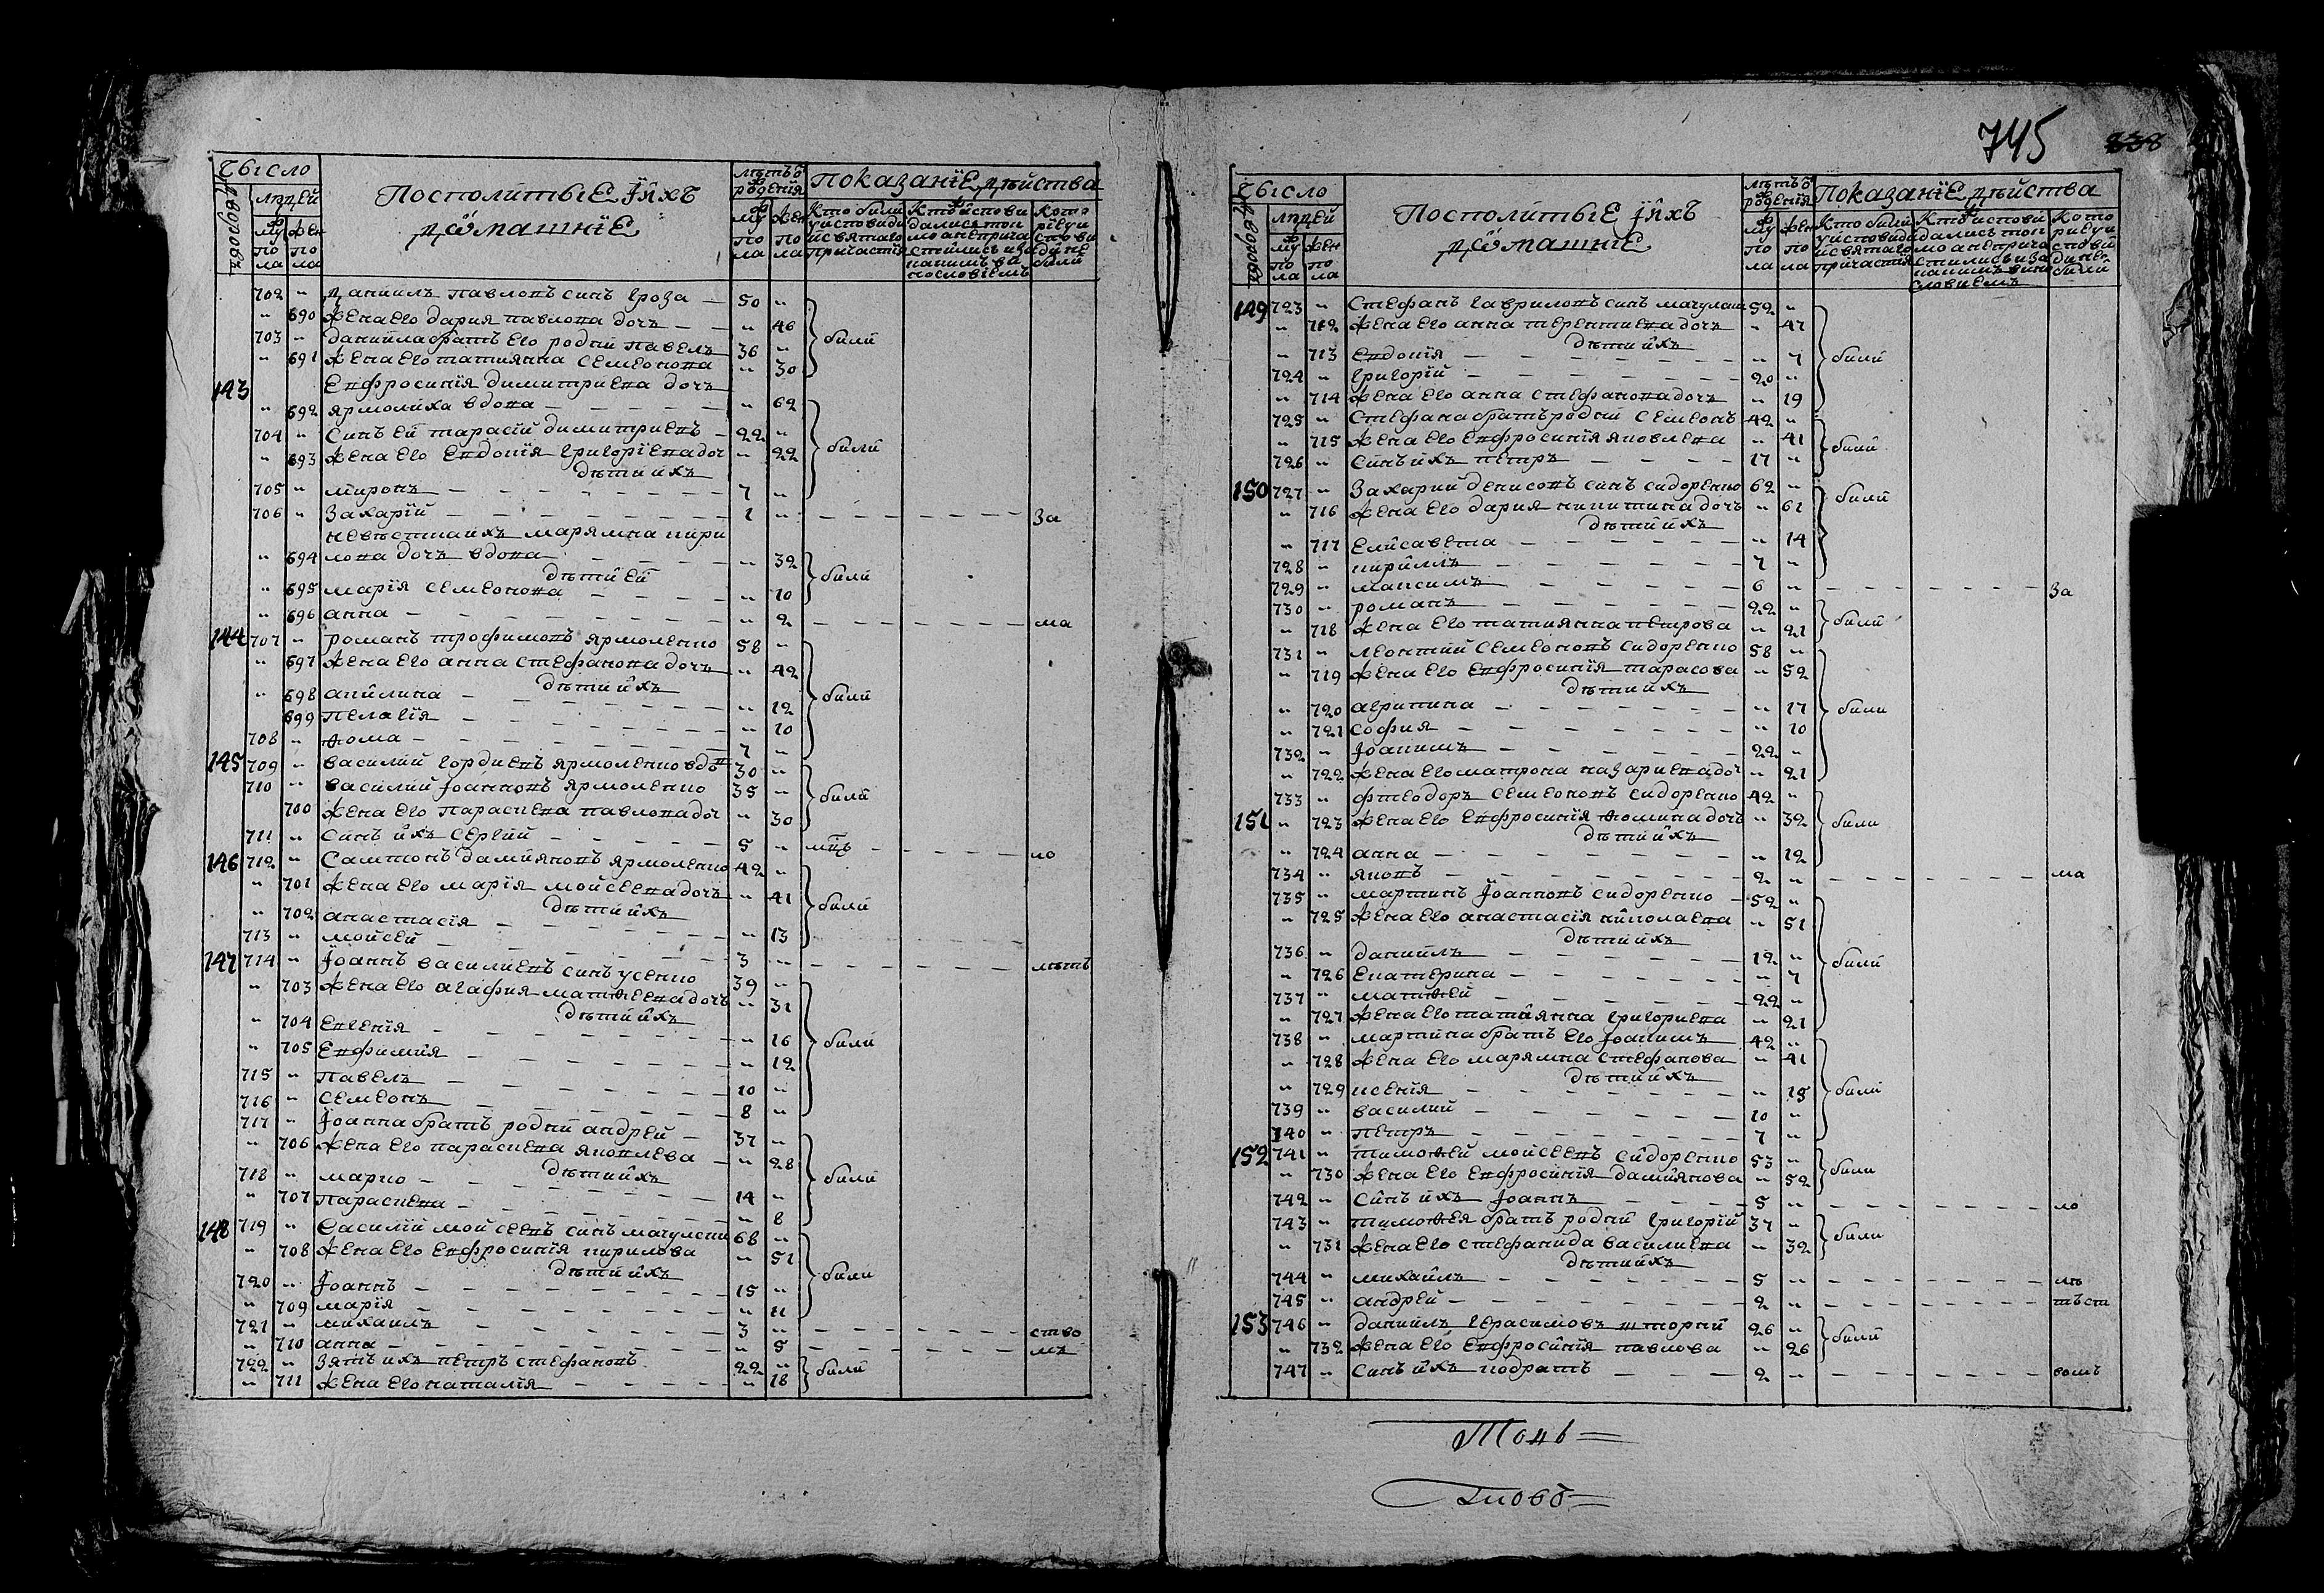 Число
Посполитые и ихъ домашние
лѣтъ ѿ рождения
Показание дѣйства
дворовъ
людей
му по ла
жен по ла
му по ла
жен по ла
Кто были у исповиди и святаго причастия
Кто исповидались токмо а не причастились и за каким винословием
Которие у исповиди не были
702 " Даниилъ павловъ синъ гроза — 50 "
" 690 жена его дария павлова дочъ — " 46 били
703 " даниила братъ его родни павелъ 36 "
" 691 жена его татиянна семеонова " 30
143 Евфросиния димитриева дочъ
" 692 ярмолиха вдова — " 62
704 " Синъ ей тарасий димитриевъ — 22 "
" 693 жена его Евдокия григориева доч " 22 били
дѣти ихъ
705 " миронъ — 7 "
706 " Захарий — 1 " за
невѣстка ихъ мариямна кири
" 694 лова дочъ вдова — " 32
дѣти ей били
" 695 мария семеонова — " 10
" 696 анна — " 2 ма
144 707 " романъ трофимовъ ярмоленко 58 "
" 697 жена его анна стефанова дочъ " 42
дѣти ихъ
" 698 акилина — " 12 били
699 пелагия — " 10
708 " Ѳома — 7 "
145 709 " василий гордиевъ ярмоленко вдов 30 "
710 " василий Иоанновъ ярмоленко 35 "
700 жена его параскева павлова доч " 30 били
711 " Синъ ихъ сергий — 5 " ло
146 712 " Самсонъ дамияновъ ярмоленко 42 "
" 701 жена его мария мойсеева дочъ " 41
дѣти ихъ били
" 702 анастасия — " 13
713 " мойсей — 3 " лѣтъ
147 714 " Иоаннъ василиевъ синъ усенко 39 "
" 703 жена его агафия матѳеева дочъ " 31
дѣти ихъ
" 704 Евгения — " 16 били
" 705 Евфимия — " 12
715 " павелъ — 10 "
716 " семеонъ — 8 "
717 " Иоанна братъ родни андрей — 37 "
" 706 жена его параскева яковлева — " 28
дѣти ихъ
718 " марко — 14 " били
" 707 параскева — " 8
148 719 " василий мойсеевъ синъ мачулски 68 "
" 708 жена его евфросиния кирилова " 51
дѣти ихъ
720 " Иоаннъ — 15 " били
" 709 мария — " 11
721 " михаилъ — 3 " ство
" 710 анна — " 5 мъ
722 " Зять ихъ петръ стефановъ 22 "
" 711 жена его наталия — " 18 били
745
838
Число
Посполитые и ихъ домашние
лѣтъ ѿ рождения
Показание дѣйства
дворовъ
людей
му по ла
жен по ла
му по ла
жен по ла
Кто били у исповиди и святаго причастия
Кто исповидались токмо а не причастились и за каким винословием
Которие у исповиди не били
149 723 " Стефанъ гавриловъ синъ мачулски 52 "
" 712 жена его анна терентиева дочъ " 47
дѣти ихъ
" 713 Евдокия — " 7 били
724 " григорий — 20 "
" 714 жена его анна стефанова дочъ " 19
725 " Стефана братъ родни семеонъ 42 "
" 715 жена его евфросиния яковлева " 41 били
726 " Синъ ихъ петръ — 17 "
150 727 " Захарий денисовъ синъ сидоренко 62 "
" 716 жена его дария никитина дочъ " 61 били
дѣти ихъ
" 717 Елисавета — " 14
728 " кирилъ — 7 "
729 " максимъ — 6 " за
730 " романъ — 22 "
" 718 жена его татиянна петрова " 21 били
731 " леонтий семеоновъ сидоренко 58 "
" 719 жена его евфросиния тарасова " 52
дѣти ихъ
" 720 агрипина — " 17 били
" 721 София — " 10
732 " Иоакимъ — 22 "
" 722 жена его матрона назариева доч " 21
733 " фтеодоръ семеоновъ сидоренко 42 "
151 " 723 жена его евфросиния Ѳомина дочъ " 32 били
дѣти ихъ
" 724 анна — " 12
734 " яковъ — 2 " ма
735 " мартинъ Иоанновъ сидоренко — 52 "
" 725 жена его анастасия николаева " 51
дѣти ихъ
736 " даниилъ — 12 " били
" 726 Екатерина — " 7
737 " матѳей — 22 "
" 727 жена его татиянна григориева " 21
738 " мартина братъ его Иоакимъ 42 "
" 728 жена его мариямна стефанова " 41
дѣти ихъ
" 729 ксения — " 15 били
739 " василий — 10 "
740 " петръ — 7 "
152 741 " тимоѳей мойсеевъ сидоренко 53 "
" 730 жена его евфросиния дамиянова " 52 били
742 " Синъ ихъ Иоаннъ — 5 " ло
743 " тимоѳея братъ родни григорий 37 "
" 731 жена его стефанида василиева " 32 били
дѣти ихъ
744 " михаилъ — 5 " лѣ
745 " андрей — 2 " тъст
153 746 " даниилъ герасимовъ шторний 26 "
" 732 жена его евфросиния павлова " 26 били
747 " Синъ ихъ кодратъ — 2 " вомъ